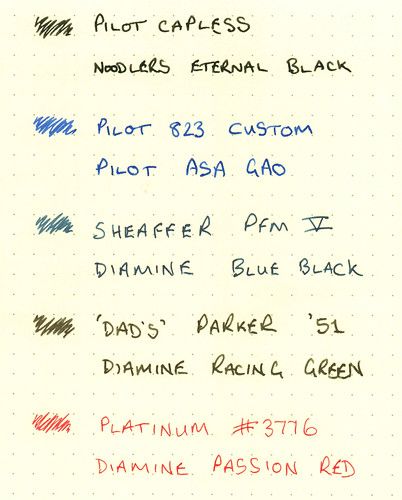 PILOT CAPLESS
NOODLERS ETERNAL BLACK
PILOT 823 CUSTOM
PILOT ASA GAO
SHEAFFER PFM V
DIAMINE BLUE BLACK
'DAD'S' PARKER '51
DIAMINE RACING GREEN
PLATINUM #3776
DIAMINE PASSION RED